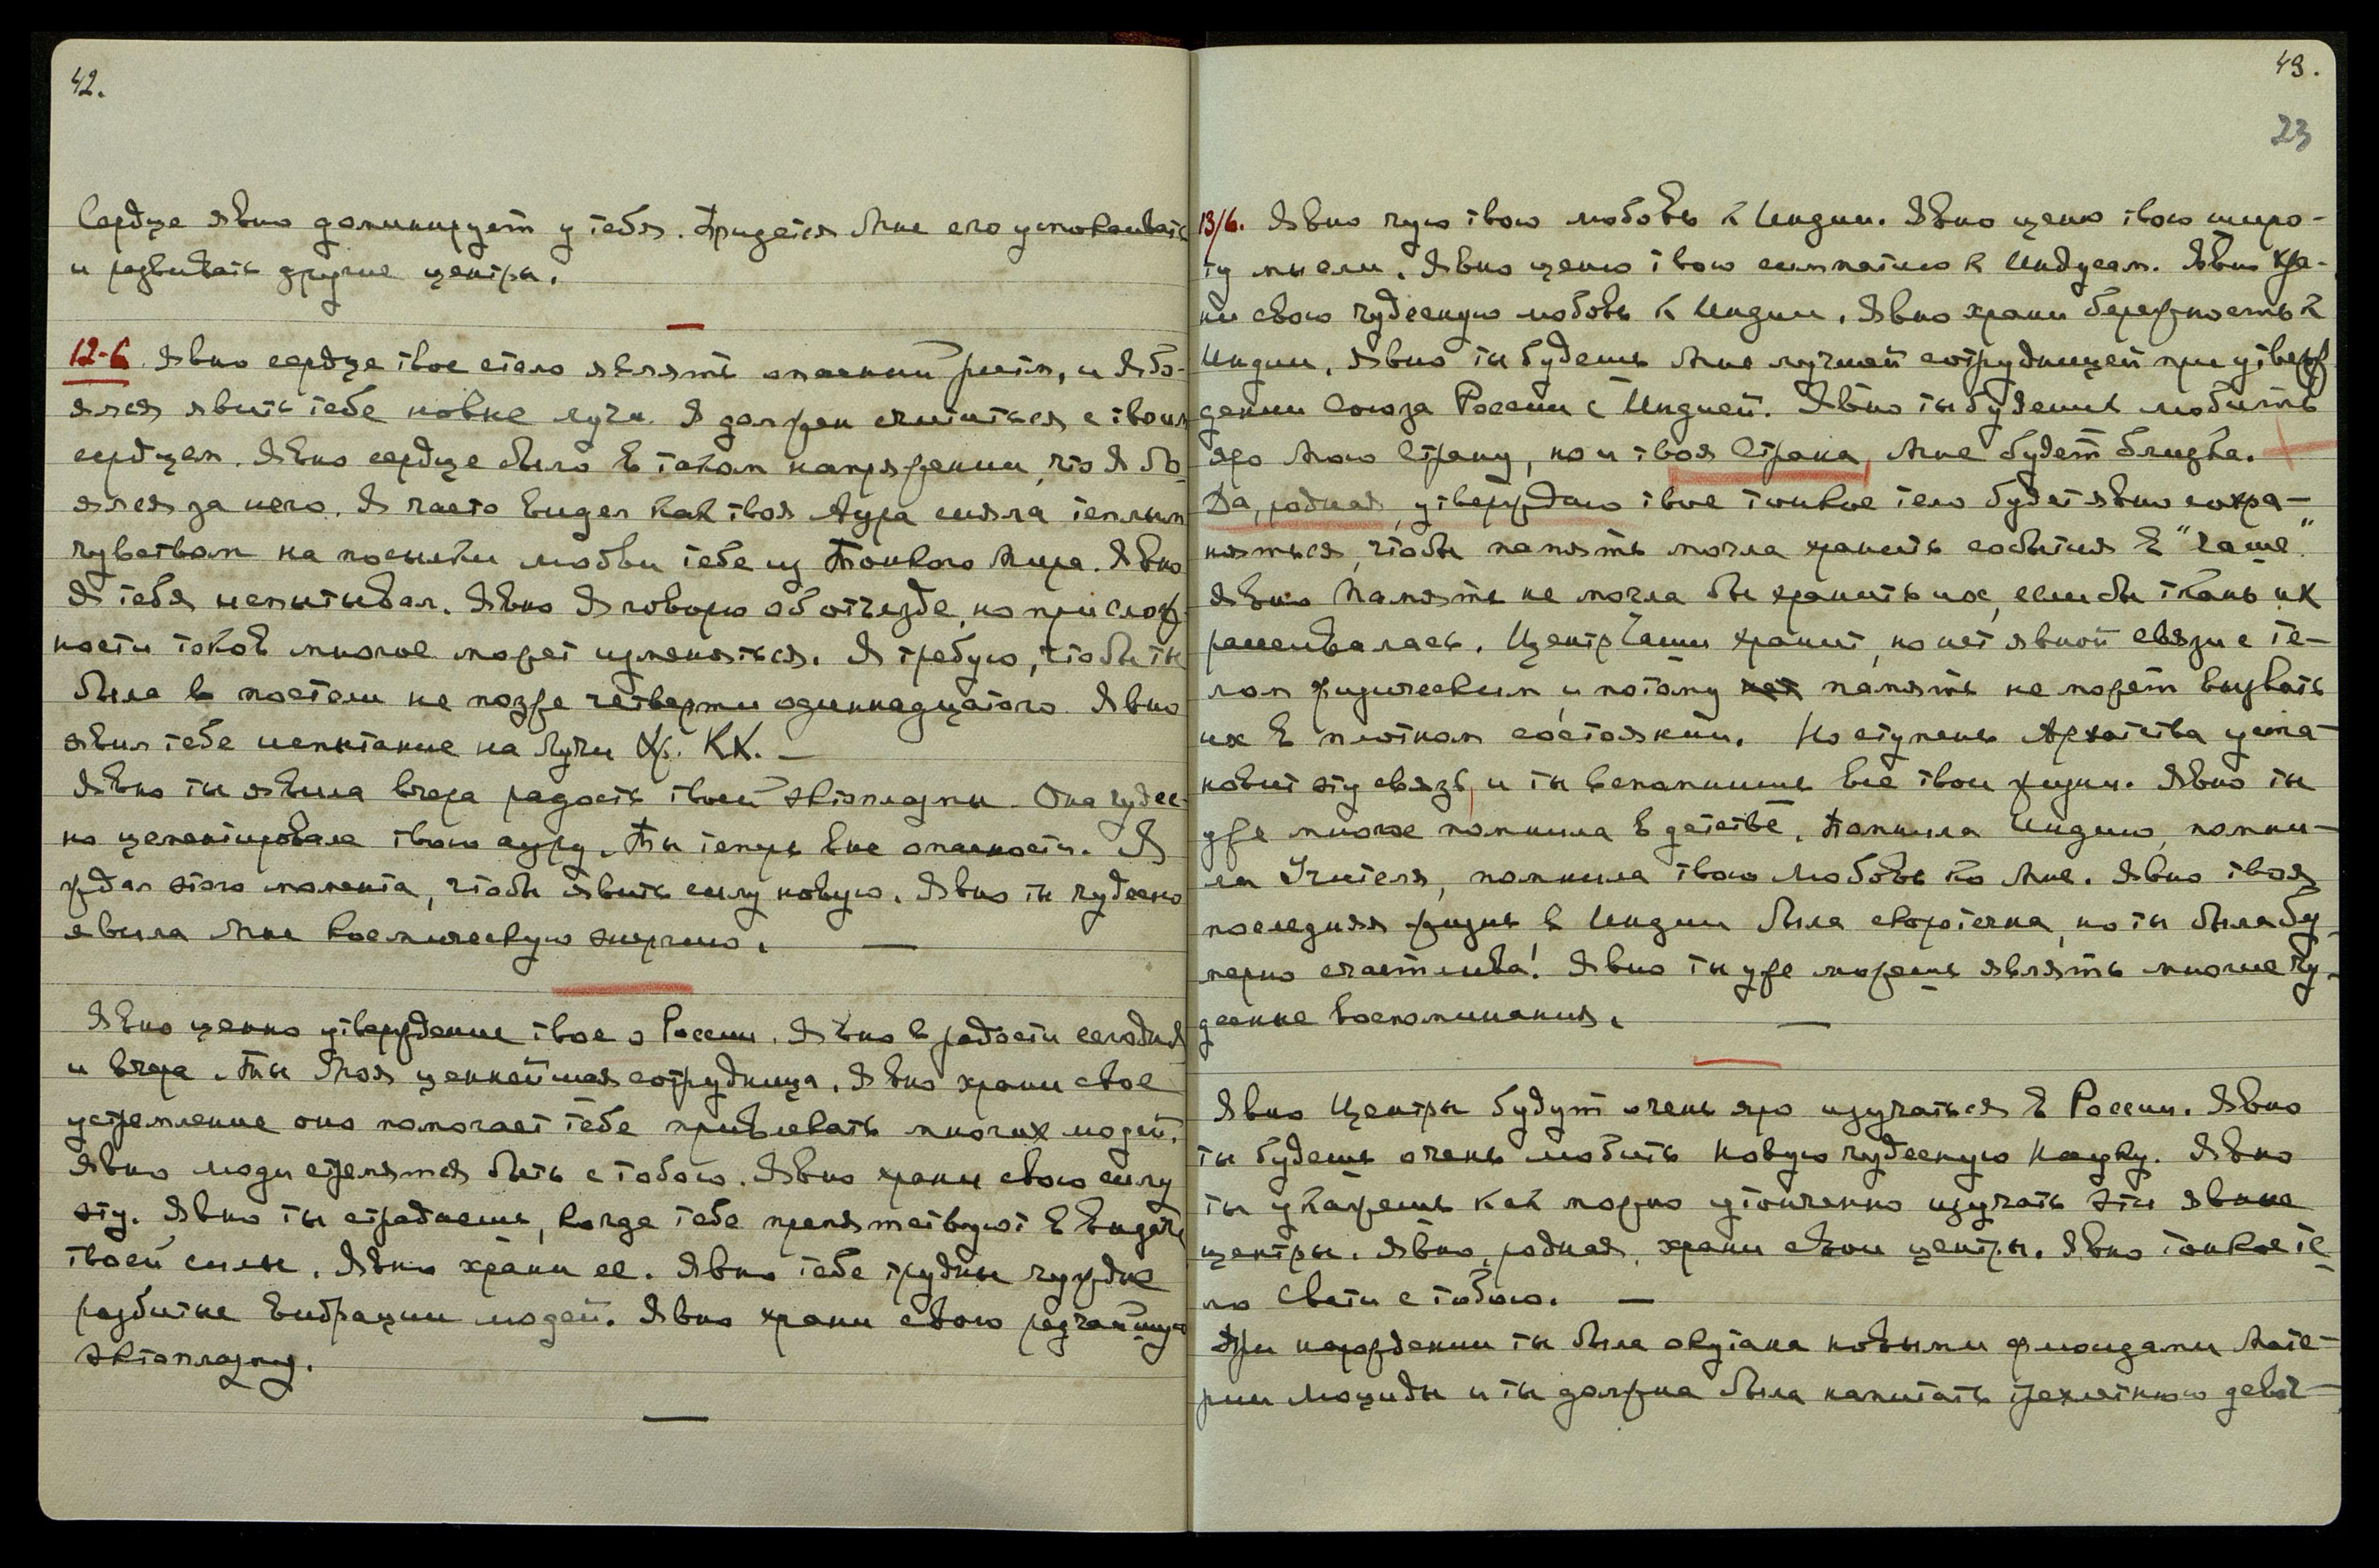 42.
Сердце явно доминирует у тебя. Придется Мне его успокаивать
и развивать другие центры.
12-6. Явно сердце твое стало являть опасный ритм, и Я бо-
ялся явить тебе новые лучи. Я должен считаться с твоим
сердцем. Явно сердце было в таком напряжении, что Я бо-
ялся за него. Я часто видел как твоя Аура сияла теплым
чувством на посылки любви тебе из Тонкого Мира. Явно
Я тебя испытывал. Явно Я говорю об отъезде, но при слож-
ности токов многое может измениться. Я требую, чтобы ты
была в постели не позже четверти одиннадцатого. Явно
явил тебе испытание на Лучи Кр. КК. —
Явно ты явила вчера радость твоей эктоплазмы. Она чудес-
но цементировала твою ауру. Ты теперь вне опасности. Я
ждал этого момента, чтобы явить силу новую. Явно ты чудесно
явила Мне Космическую энергию. —
Явно ценно утверждение твое о России. Явно в радости сегодня
и вчера. Ты Моя ценнейшая сотрудница. Явно храни свое
устремление оно помогает тебе привлекать многих людей.
Явно люди стремятся быть с тобою. Явно храни свою силу
эту. Явно ты страдаешь, когда тебе препятствуют в выдаче
твоей силы. Явно храни ее. Явно тебе трудны чуждые
разбитые вибрации людей. Явно храни свою редчайшую
эктоплазму.
—
43.
23
13/6. Явно чую твою любовь к Индии. Явно ценю твою широ-
ту мысли. Явно ценю твою симпатию к Индусам. Явно хра-
ни свою чудесную любовь к Индии. Явно храни бережность к
Индии. Явно ты будешь Мне лучшей сотрудницей при утверж
дении Союза России с Индией. Явно ты будешь любить
яро Мою Страну, но и твоя Страна Мне будет близка.
Да, родная, утверждаю твое тонкое тело будет явно сохра-
няться, чтобы память могла хранить события в "Чаше".
Явно Память не могла бы хранить их, если бы ткань их
рассеивалась. Центр Чаши хранит, но нет явной связи с те-
лом физическим, и потому память не может вызвать
их в плотном состоянии. Но ступень Архатства уста-
новит эту связь, и ты вспомнишь все твои жизни. Явно ты
уже многое помнила в детстве. Помнила Индию, помни-
ла Учителя, помнила твою Любовь ко Мне. Явно твоя
последняя жизнь в Индии была скоротечна, но ты была бе
мерно счастлива! Явно ты уже можешь являть многие чу-
десные воспоминания. —
Явно Центры будут очень яро изучаться в России. Явно
ты будешь очень любить Новую чудесную Науку. Явно
ты укажешь как можно утонченно изучать эти явные
центры. Явно, родная, храни свои центры. Явно тонкое те-
ло Свати с тобою. —
При нарождении ты была окутана новыми флюидами Мате-
рии Люциды и ты должна была напитать трехлетнюю девоч-